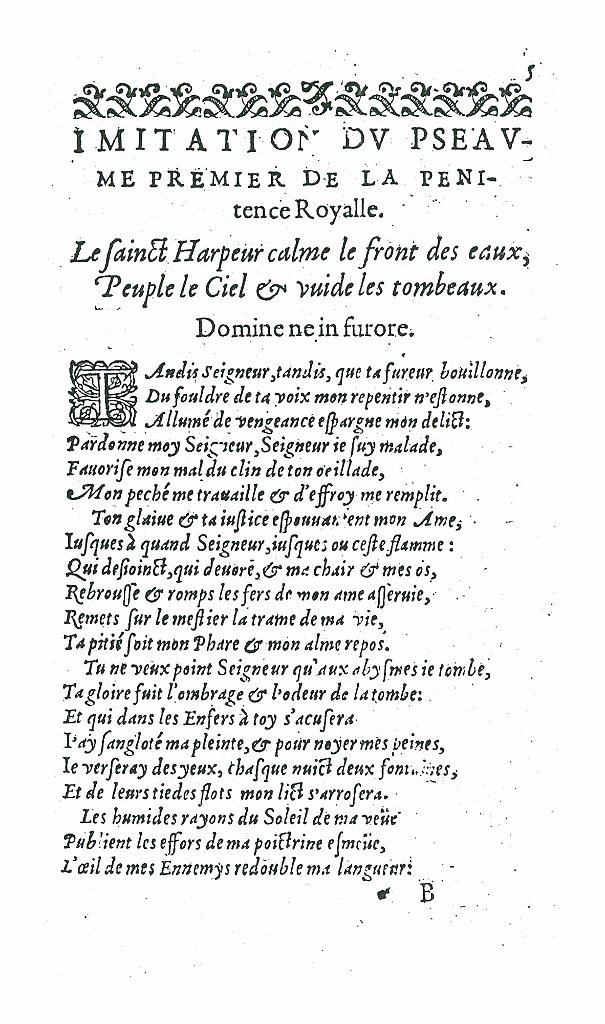 5
IMITATION DV PSEAV-
ME PREMIER DE LA PENI-
tence Royalle.
Le ſainct Harpeur calme le front des eaux,
Peuple le Ciel & vuide les tombeaux.
Domine ne in furore.
TAndis Seigneur, tandis, que ta fureur bouillonne,
Du fouldre de ta voix mon repentir n'eſtonne,
Allumé de vengeance eſpargne mon delict:
Pardonne moy Seigneur, Seigneur ie ſuy malade,
Fauoriſe mon mal du clin de ton oeillade,
Mon peché me trauaille & d'effroy me remplit.
Ton glaiue & ta iuſtice eſpouuantent mon Ame,
Iuſques à quand Seigneur, iuſques ou ceſte flamme:
Qui deſioinct, qui deuore, & ma chair & mes os,
Rebrouſſe & romps les fers de mon ame aſſeruie,
Remets ſur le meſtier la trame de ma vie,
Ta pitié ſoit mon Phare & mon alme repos.
Tu ne veux point Seigneur qu'aux abyſmes ie tombe,
Ta gloire fuit l'ombrage & l'odeur de la tombe:
Et qui dans les Enfers à toy s'acuſera
I'ay ſangloté ma pleinte, & pour noyer mes peines,
Ie verſeray des yeux, chaſque nuict deux fontaines,
Et de leurs tiedes flots mon lict s'arroſera.
Les humides rayons du Soleil de ma veüe
Publient les effors de ma poictrine eſmeüe,
L'œil de mes Ennemys redouble ma langueur:
B